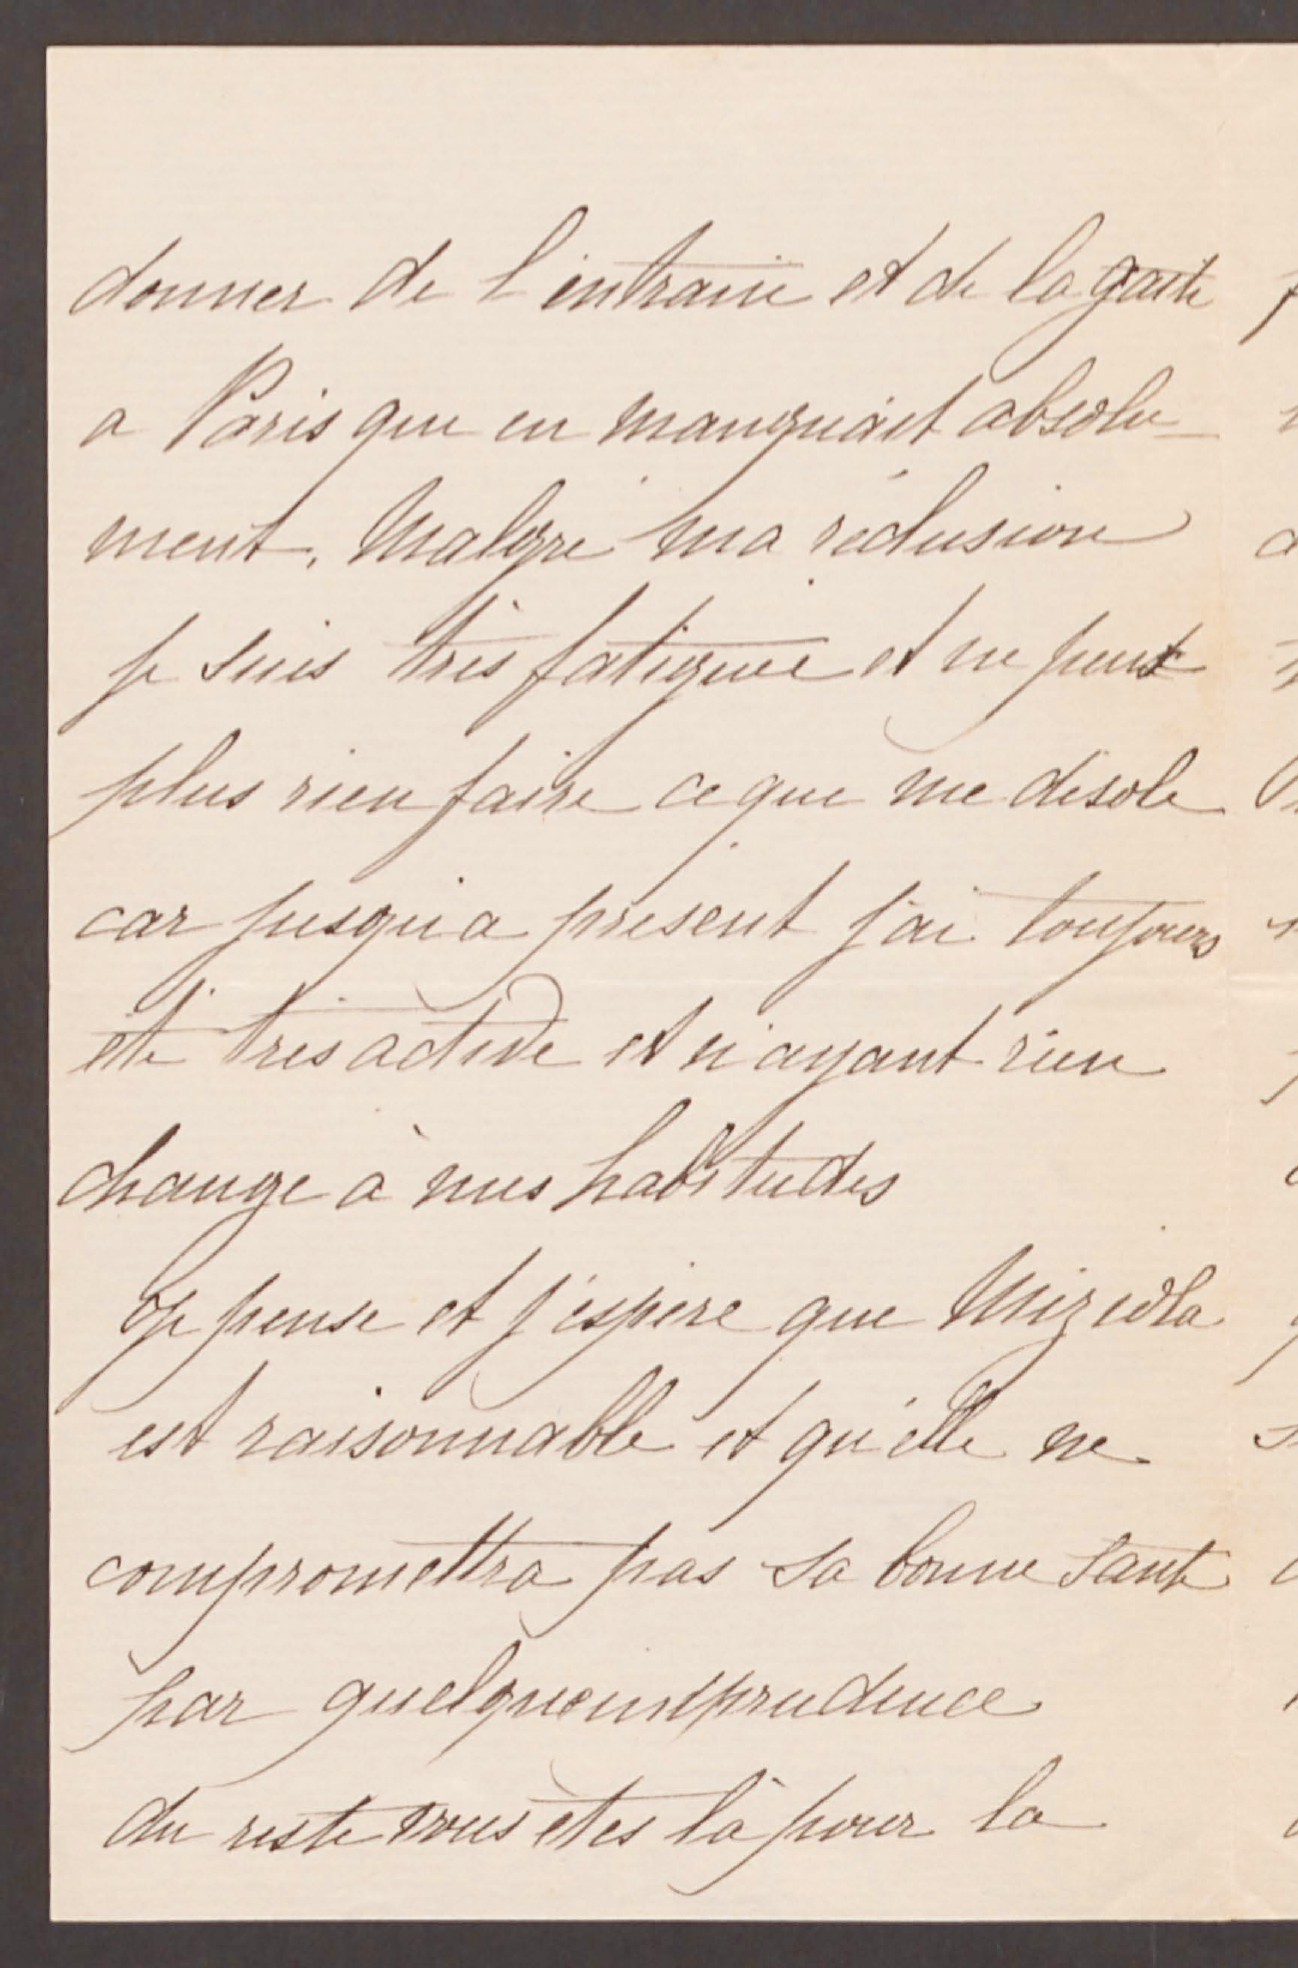 donner de l'entrain et de la gaité
a Paris qui en manquait absolu-
ment. Malgré ma réclusion
je suis très fatiguée et ne peut
plus rien faire ce qui me désole
car jusqu'a présent j'ai toujours
été très active et n'ayant rien
changé à mes habitudes
Je pense et j'espère que
est raisonnable et qu'elle ne
compromettra pas sa bonne santé
par quelque imprudence
du reste vous êtes là pour la